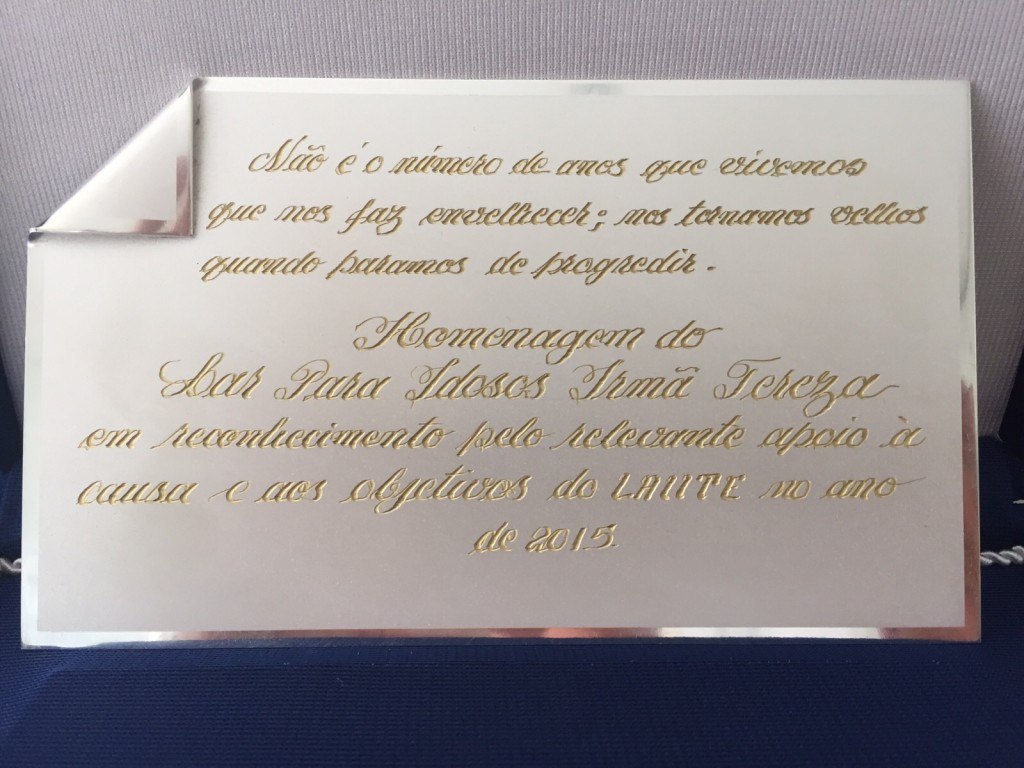 Não é o número de anos que vivemos
que nos faz envelhecer; nos tornamos velhos
quando paramos de progredir.
Homenagem do
Lar Para Idosos Irmã Tereza
em reconhecimento pelo relevante apoio à
causa e aos objetivos do no ano
de 2015.